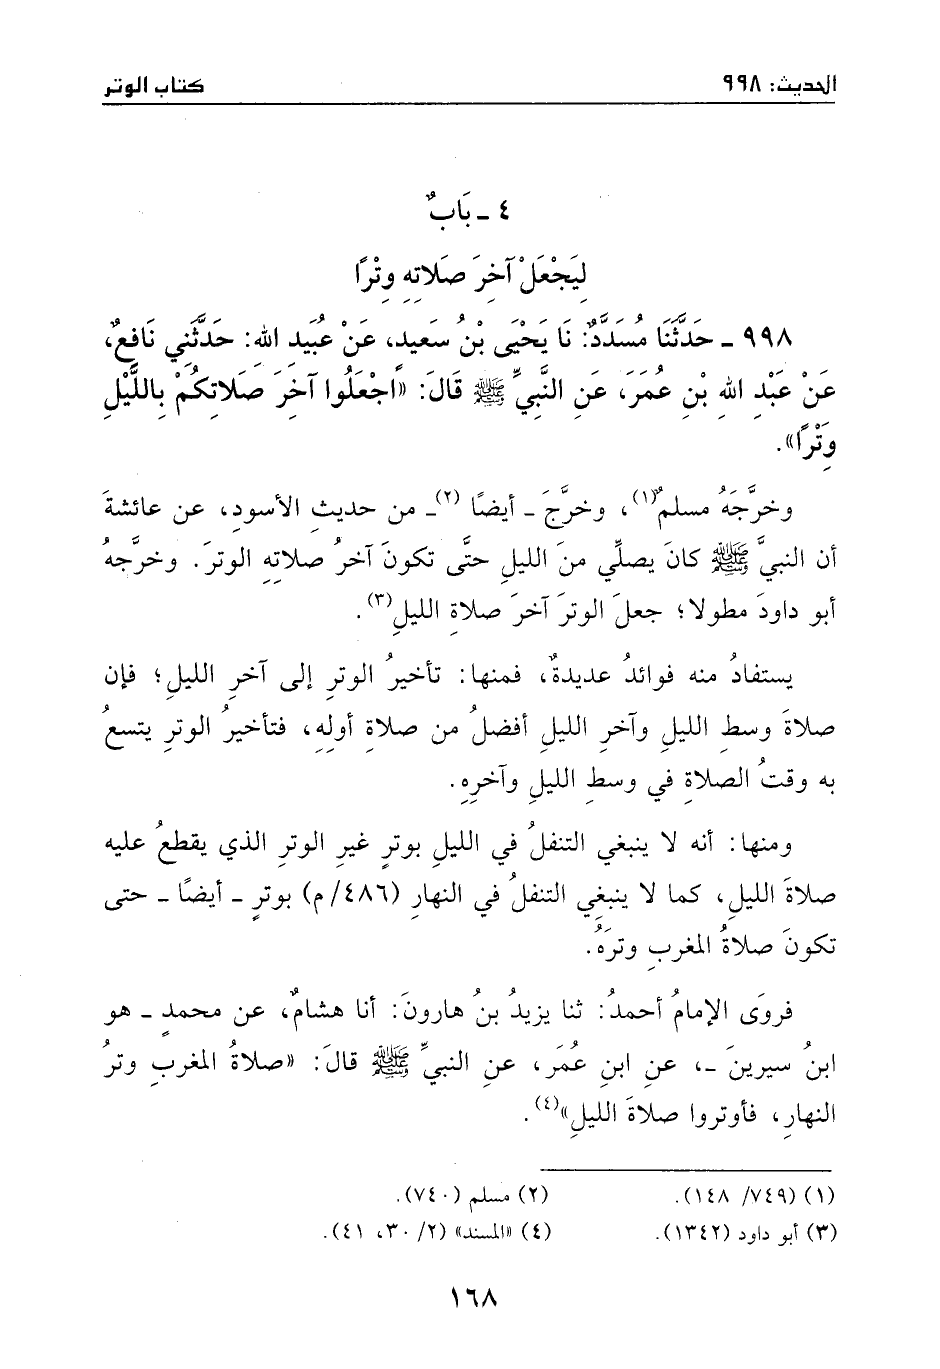 الحديث: ٩٩٨
كتاب الوتر
٤ ـ بَابٌ
لِيَجْعَلْ آخِرَ صَلَاتِهِ وِتْرًا
٩٩٨ ـ حَدَّثَنَا مُسَدَّدٌ: نَا يَحْيَى بْنُ سَعِيدٍ، عَنْ عُبَيدِ اللهِ: حَدَّثَنِي نَافِعٌ،
عَنْ عَبْدِ اللهِ بْنِ عُمَرَ، عَنِ النَّبِيِّ ﷺ قَالَ: «اجْعَلُوا آخِرَ صَلَاتِكُمْ بِاللَّيْلِ
وِتْرًا».
وخرَّجَهُ مسلمٌ(١)، وخرَّجَ ـ أيضًا (٢)ـ من حديثِ الأسودِ، عن عائشةَ
أن النبيَّ ﷺ كانَ يصلِّي منَ الليلِ حتَّى تكونَ آخرُ صلاتِهِ الوترَ. وخرَّجهُ
أبو داودَ مطولا؛ جعلَ الوترَ آخرَ صلاةِ الليلِ(٣).
يستفادُ منه فوائدُ عديدةٌ، فمنها: تأخيرُ الوترِ إلى آخرِ الليلِ؛ فإن
صلاةَ وسطِ الليلِ وآخرِ الليلِ أفضلُ من صلاةِ أولِهِ، فتأخيرُ الوترِ يتسعُ
به وقتُ الصلاةِ في وسطِ الليلِ وآخرِهِ.
ومنها: أنه لا ينبغي التنفلُ في الليلِ بوترٍ غيرِ الوترِ الذي يقطعُ عليه
صلاةَ الليلِ، كما لا ينبغِي التنفلُ في النهارِ (٤٨٦/م) بوترٍ ـ أيضًا ـ حتى
تكونَ صلاةُ المغربِ وترَهُ.
فروَى الإمامُ أحمدُ: ثنا يزيدُ بنُ هارونَ: أنا هشامٌ، عن محمدٍ ـ هو
ابنُ سيرينَ ـ، عنِ ابنِ عُمَر، عنِ النبيِّ ﷺ قالَ: «صلاةُ المغربِ وترُ
النهارِ، فأوتروا صلاةَ الليلِ»(٤).
(١) (٧٤٩/ ١٤٨).
(٢) مسلم (٧٤٠).
(٣) أبو داود (١٣٤٢).
(٤) «المسند» (٢/ ٣٠، ٤١).
١٦٨